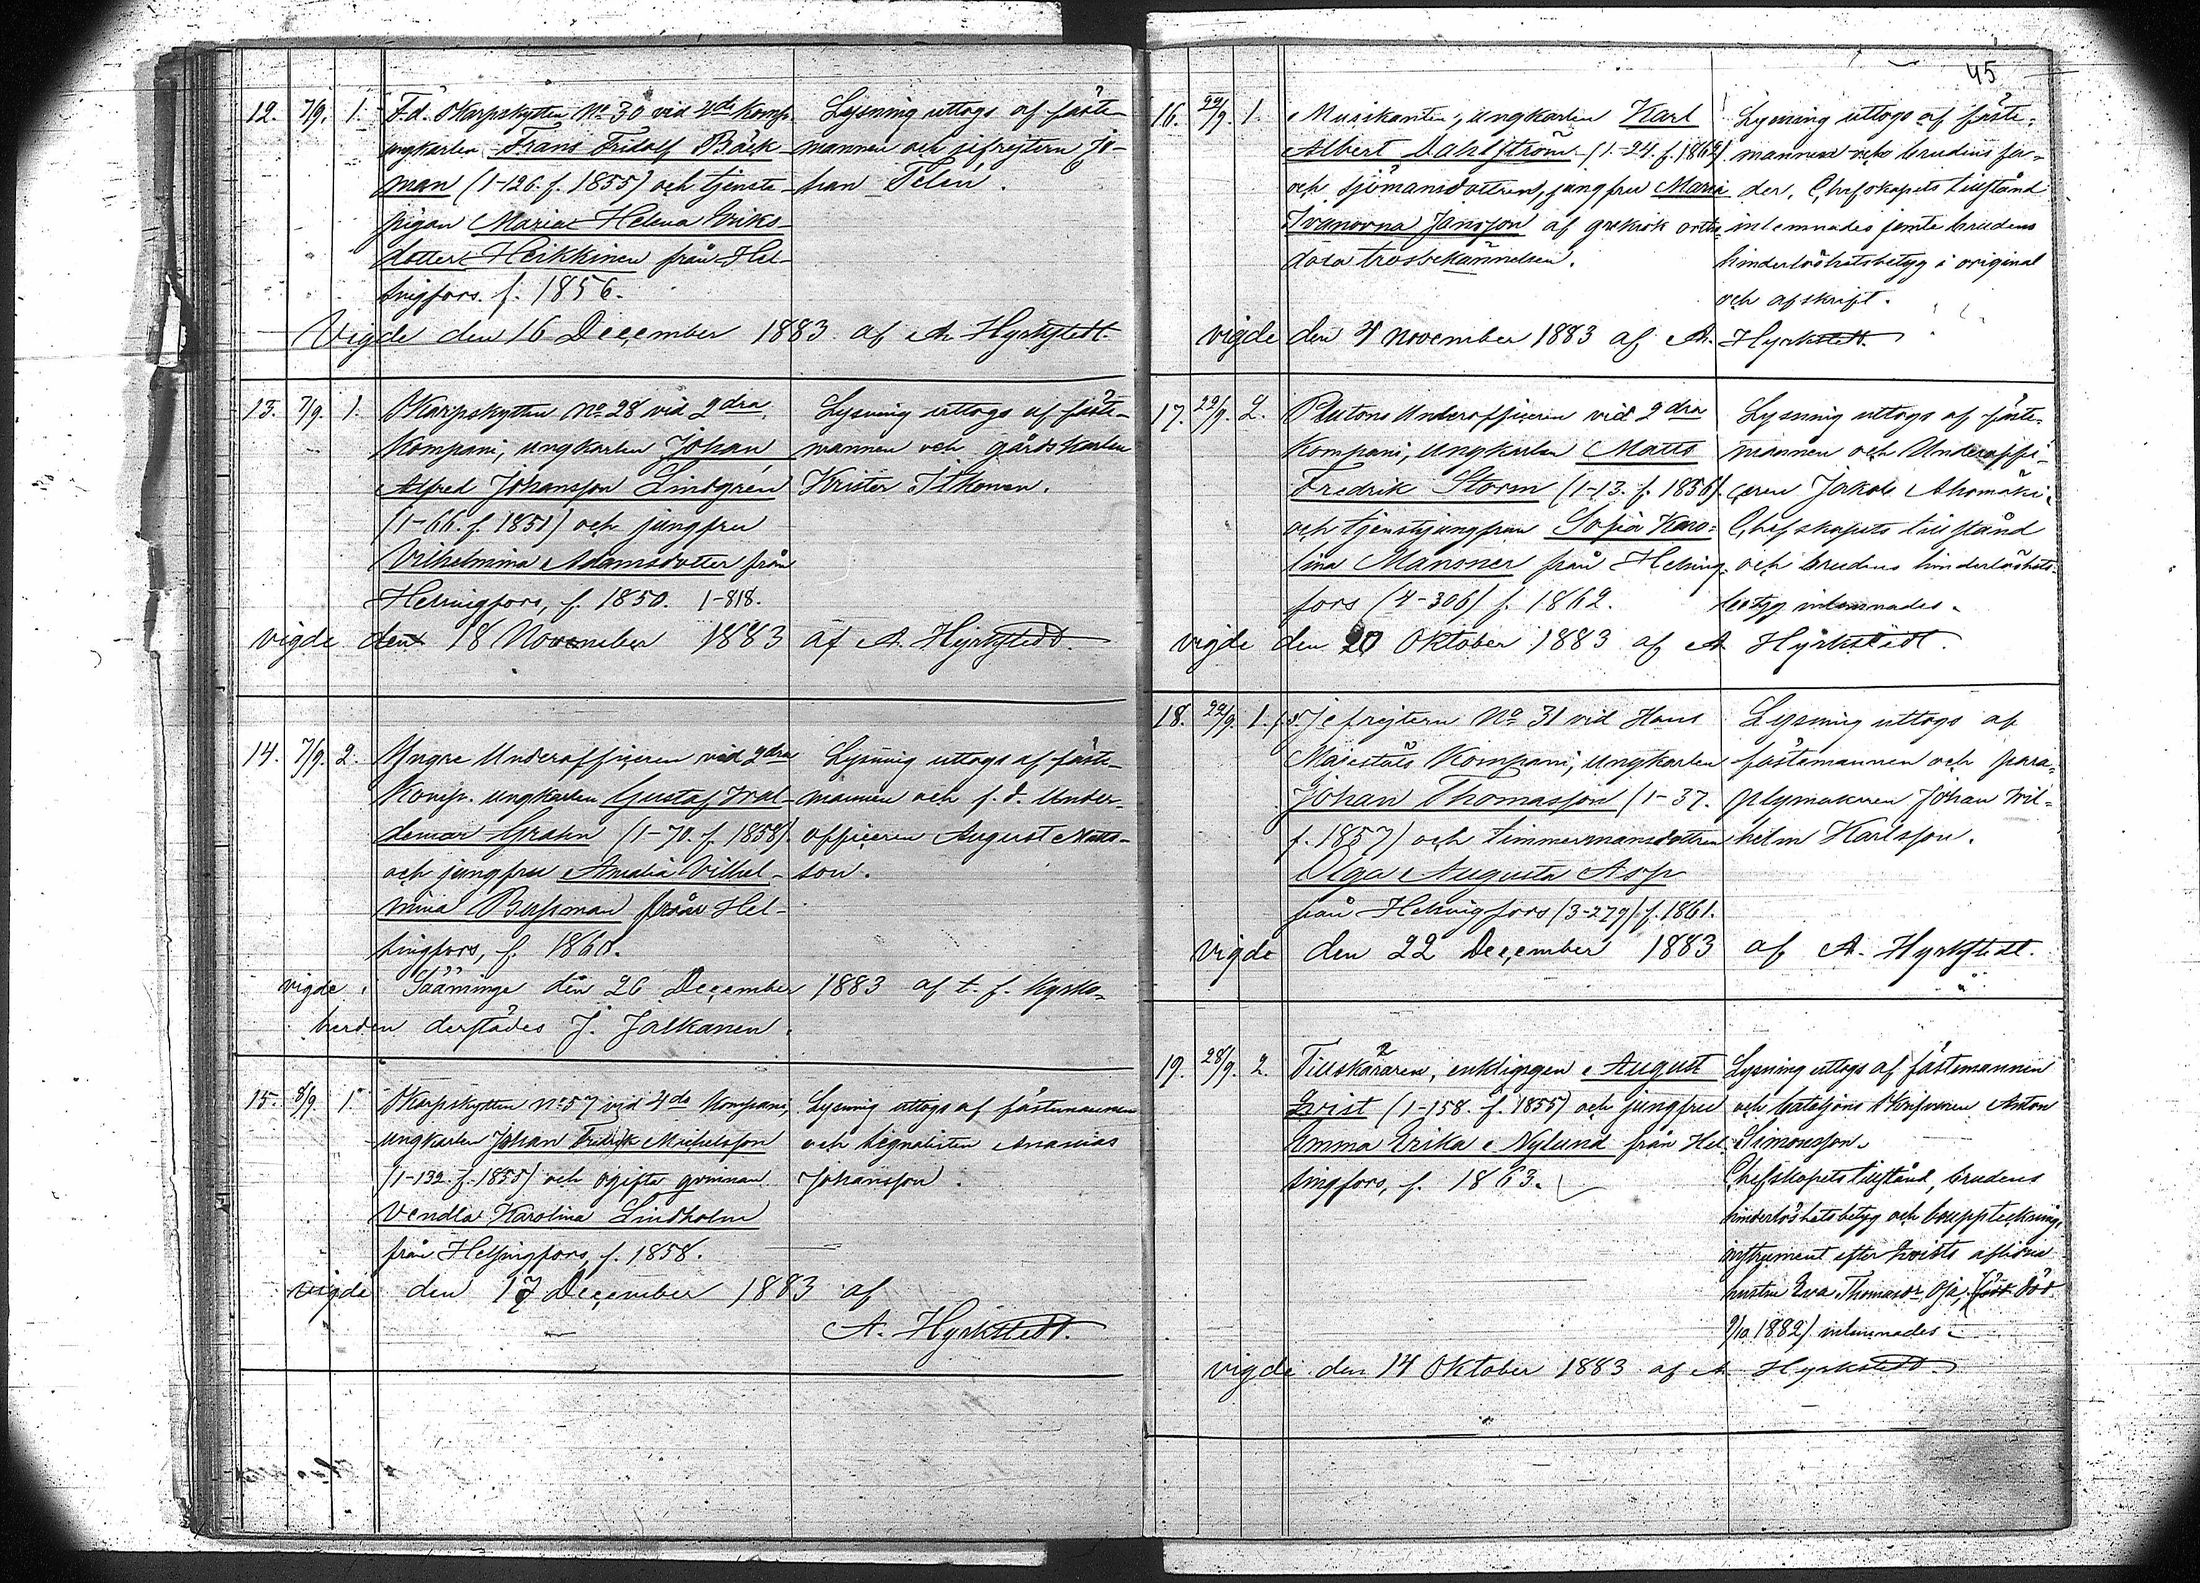 12. 7/9. 1. F.d. Skarpskytten No 30 vid 4de komp.
ungkarlen Frans Fridolf Bäck-
man (1-126. f. 1855) och tjenste-
pigan Maria Helena Eriks-
dotter Heikkinen från Hel-
singfors. f. 1856.
Lysning uttogs af fäste-
mannen och jefrejtern Jo-
han Telén.
Vigde den 16 December 1883 af A. Hyrkstedt.
13. 7/9. 1. Skarpskytten No 28 vid 2dra
Kompani, ungkarlen Johan
Alfred Johansson Lindgrén
(1-66. f. 1851) och jungfru
Vilhelmina Adamsdotter från
Helsingfors, f. 1850. 1-818.
Lysning uttogs af fäste-
mannen och gårdskarlen
Krister Itkonen.
vigde den 18 November 1883 af A. Hyrkstedt.
14. 7/9. 2. Yngre Underofficeren vid 2dra
Komp. ungkarlen Gustaf Wal-
demar Grahn (1-70. f. 1858)
och jungfru Amalia Vilhel-
mina Bussman från Hel-
singfors, f. 1860.
Lysning uttogs af fäste-
mannen och f.d. Under-
officeren August Matts-
son.
vigde i Sääminge den 26 December 1883 af t. f. Kyrko-
herden derstädes J. Jalkanen.
15. 8/9. 1. Skarpskytten No 57 vid 4de Kompani,
ungkarlen Johan Fridrik Michelsson
(1-132. f. 1855) och ogifta qvinnan
Vendla Karolina Lindholm
från Helsingfors, f. 1858.
Lysning uttogs af fästemannen
och signalisten Ananias
Johansson.
vigde den 17 December 1883 af
A. Hyrkstedt.
45
16. 22/9. 1. Musikanten, ungkarlen Karl
Albert Dahlström (1-24. f. 1862)
och sjömansdottren, jungfru Maria
Ivanovna Jansson af grekisk orto-
doxa trosbekännelsen.
Lysning uttogs af fäste-
mannen och brudens fa-
der. Chefskapets tillstånd
inlemnades jemte brudens
hinderlöshetsbetyg i original
och afskrift.
vigde den 4 November 1883 af A. Hyrkstedt.
17. 22/9. 2. Plutons Underofficeren vid 2dra
Kompani, ungkarlen Matts
Fredrik Storm (1-13. f. 1856)
och tjenstejungfrun Sofia Karo-
lina Mansner från Helsing-
fors (4-306) f. 1862.
Lysning uttogs af fäste-
mannen och Underoffi-
ceren Jakob Ahomäki.
Chefskapets tillstånd
och brudens hinderlöshets-
betyg inlemnades.
vigde den 20 Oktober 1883 af A. Hyrkstedt.
18. 22/9. 1. Jefrejtern No 31 vid Hans
Majestäts Kompani, ungkarlen
Johan Thomasson (1-37.
f. 1857) och timmermansdottren
Olga Augusta Asp
från Helsingfors (3-279) f. 1861.
Lysning uttogs af
fästemannen och para-
plymakaren Johan Wil-
helm Karlsson.
vigde den 22 December 1883 af A. Hyrkstedt.
19. 28/9. 2. Tillskäraren, enklingen August
Qvist (1-158. f. 1855) och jungfru
Emma Erika Nylund från Hel-
singfors, f. 1863.
Lysning uttogs af fästemannen
och bataljons Skrifvaren Anton
Simonsson.
Chefskapets tillstånd, brudens
hinderlöshetsbetyg och bouppteckning,
instrument efter Qvists aflidna
hustru Eva Thomasdr Oja, (född död
9/10 1882) inlemnades.
vigde den 14 Oktober 1883 af A. Hyrkstedt